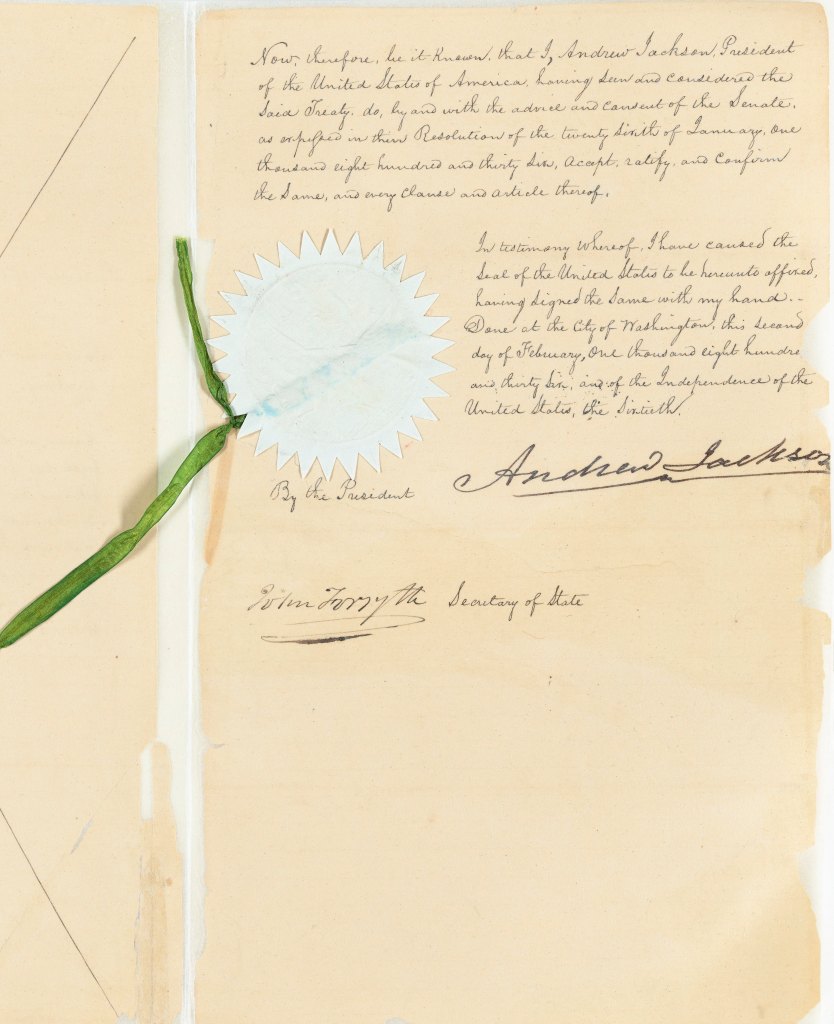 Now, therefore, be it Known, that I, Andrew Jackson, President
of the United States of America, having seen and considered the
Said Treaty, do, by and with the advice and consent of the Senate,
as expressed in their Resolution of the twenty Sixth of January, One
thousand eight hundred and thirty Six, Accept, ratify, and Confirm
the Same, and every Clause and article thereof.
In testimony Whereof, I have caused the
Seal of the United States to be hereunto affixed,
having Signed the Same with my hand. -
Done at the City of Washington, this Second
day of February, One thousand eight hundre
and thirty Six, and of the Independence of the
United States, the Sixtieth.
Andrew Jackson
By the President
John Forsyth Secretary of State